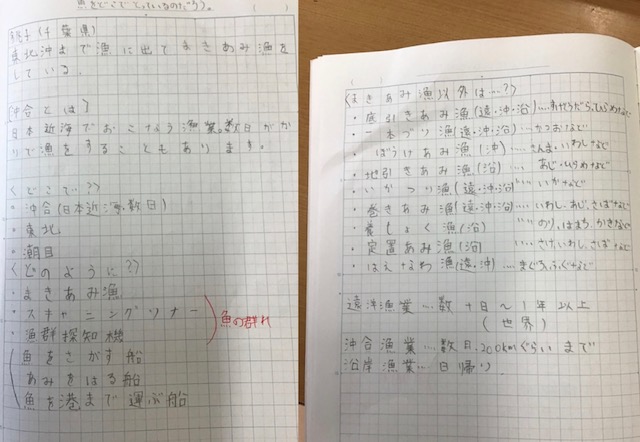 魚をどこでとっているのだろう。
銚子(千葉県)
東北沖まで漁に出てまきあみ漁を
している。
沖合とは
日本近海でおこなう漁業。数日がか
りで漁をすることもあります。
〈どこで?〉
・沖合(日本近海・数日)
・東北
・潮目
〈どのように?〉
・まきあみ漁
・スキャニングソナー
・漁群探知機
魚の群れ
魚をさがす船
あみをはる船
魚を港まで運ぶ船
〈まきあみ漁以外は…?〉
・底引きあみ漁(遠・沖・沿)…すけとうだら、ひらめなど
・一本づり漁(遠・沖・沿)…かつおなど
・ぼうけあみ漁(沖)…さんま、いわしなど
・地引きあみ漁(沿)…あじ・ひらめなど
・いかつり漁(遠・沖・沿)…いかなど
・巻きあみ漁(遠・沖・沿)…いわし、あじ、さばなど
・養しょく漁(沿)…のり、はまち、かきなど
・定置あみ漁(沿)…さけ、いわし、さばなど
・はえなわ漁(遠・沖)…まぐろ、ふぐなど
遠洋漁業…数十日〜1年以上
(世界)
沖合漁業…数日、200kmぐらいまで
沿岸漁業…日帰り